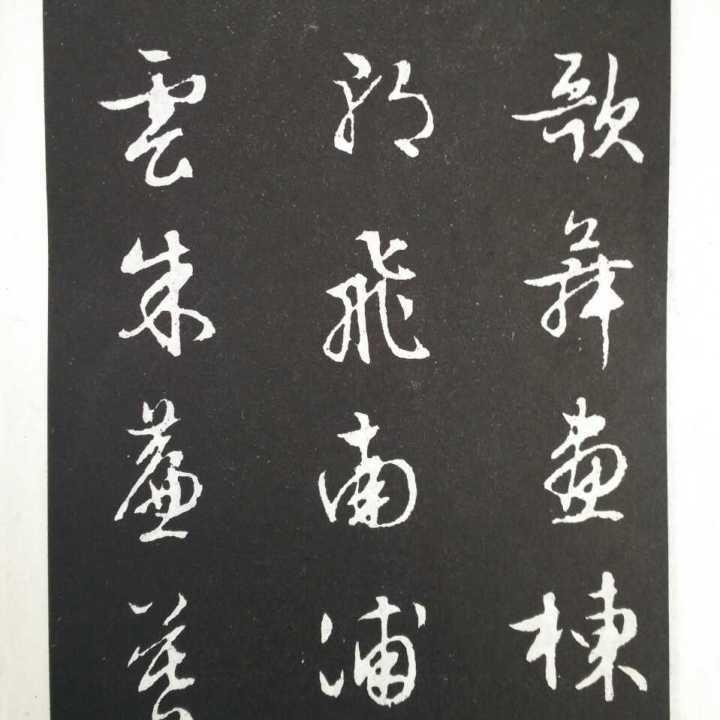 歌舞畫棟
朝飛南浦
雲朱簾暮